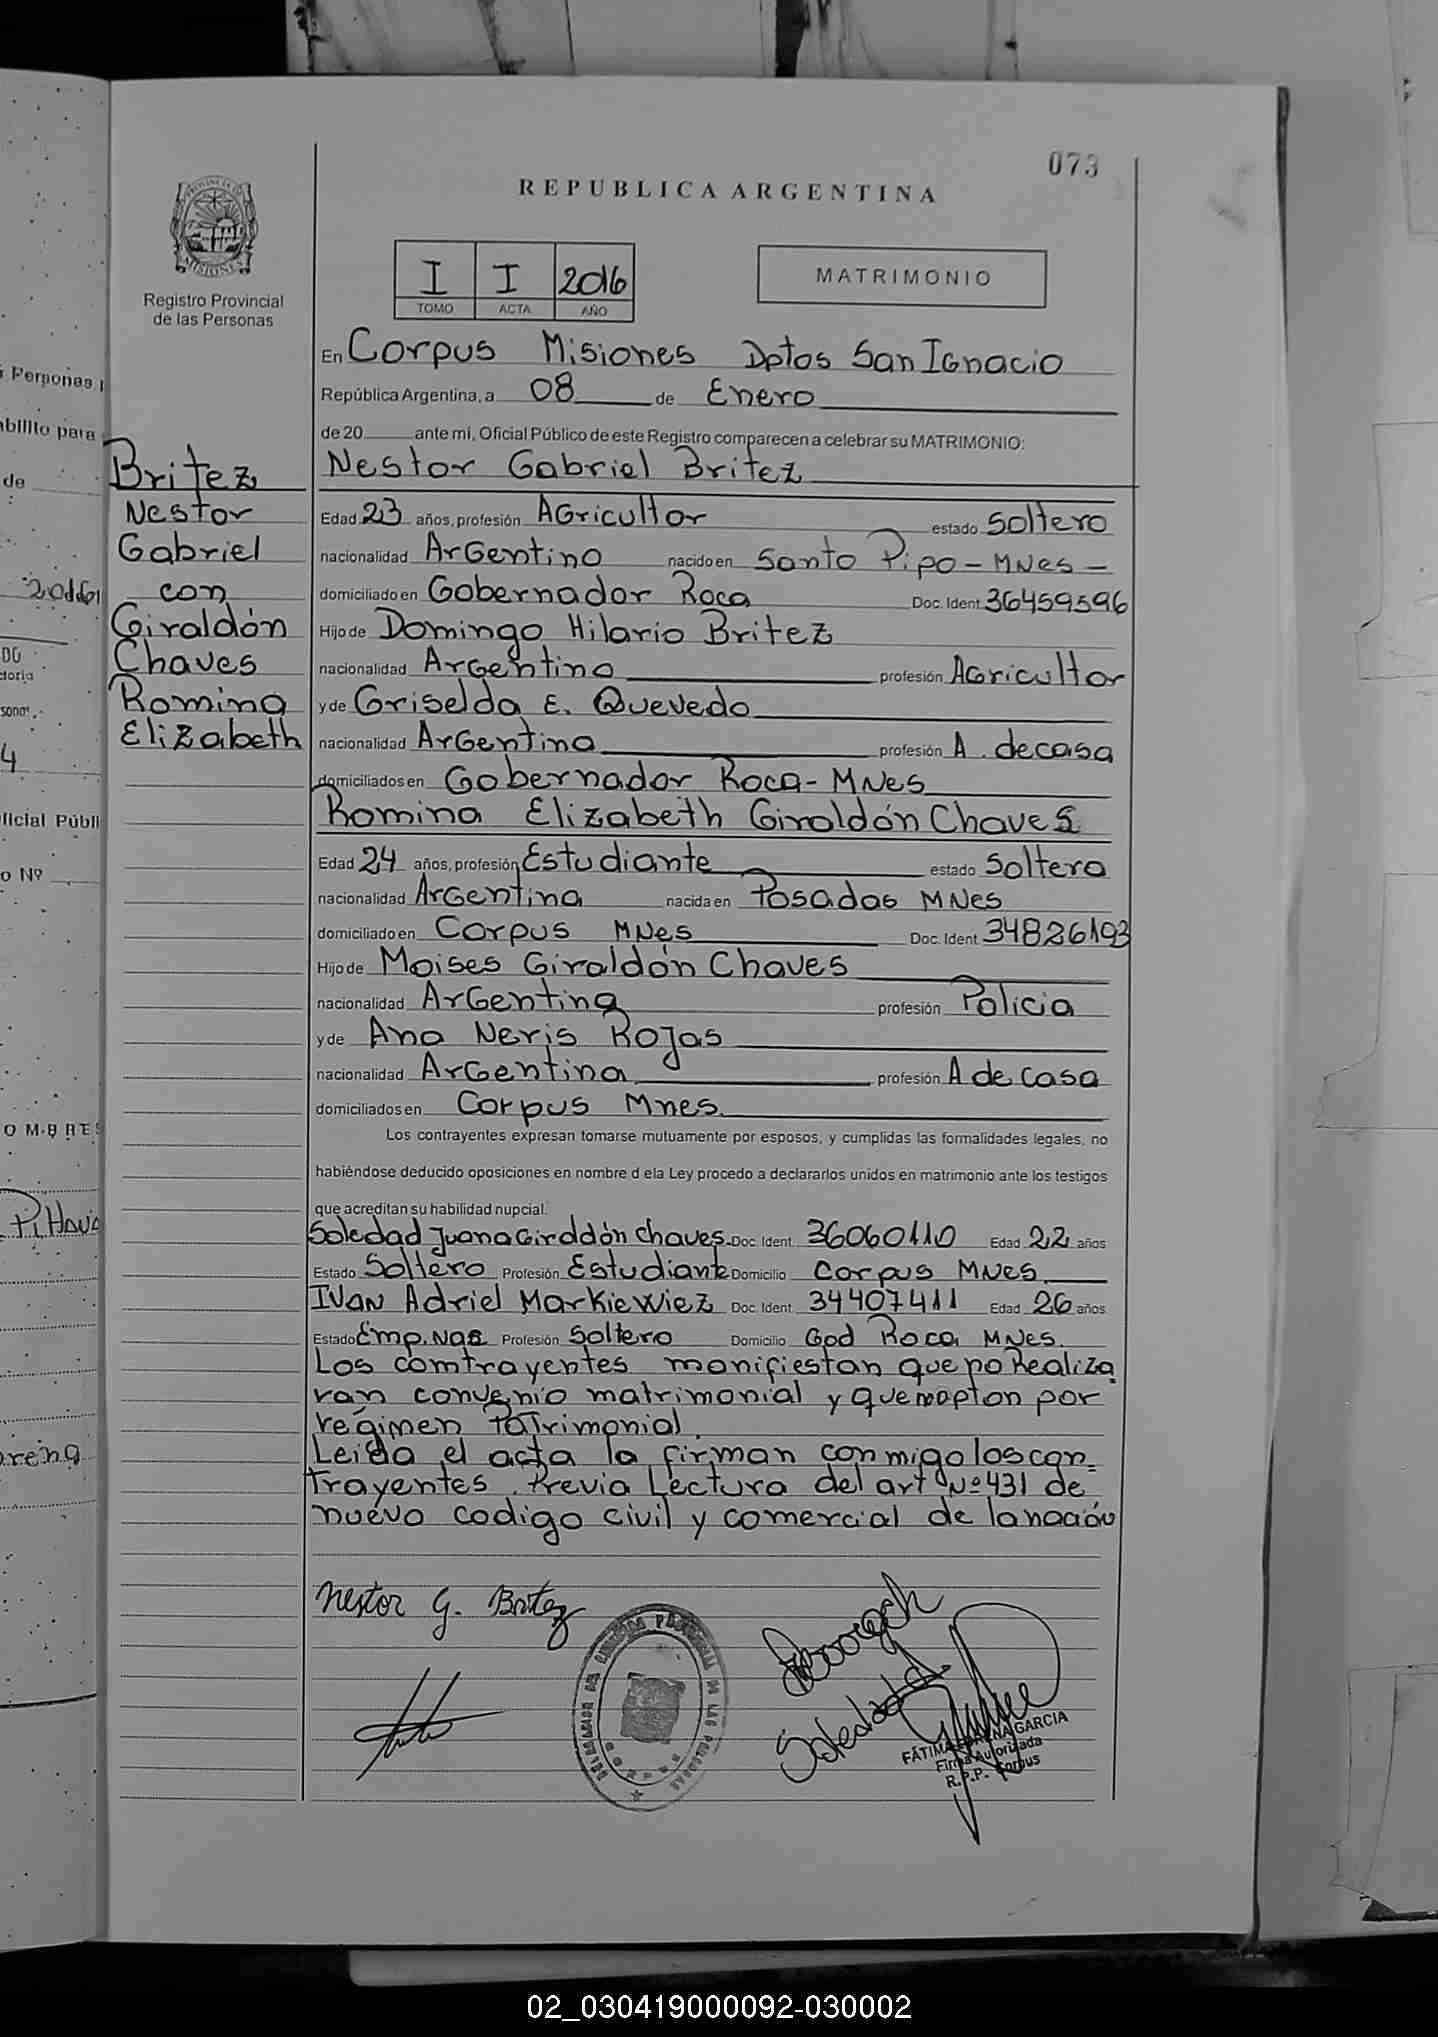 073
REPUBLICA ARGENTINA
PROVINCIA DE
MISIONES
Registro Provincial
de las Personas
I I 2016
TOMO ACTA AÑO
MATRIMONIO
En Corpus Misiones Dptos San Ignacio
República Argentina, a 08 de Enero
de 20 ante mí, Oficial Público de este Registro comparecen a celebrar su MATRIMONIO:
Britez
Nestor
Gabriel
con
Giraldón
Chaves
Romina
Elizabeth
Nestor Gabriel Britez
Edad 23 años, profesión AGricultor estado Soltero
nacionalidad ArGentino nacido en Santo Pipo - MNes -
domiciliado en Gobernador Roca Doc. Ident. 36459596
Hijo de Domingo Hilario Britez
nacionalidad ArGentino profesión AGricultor
y de Griselda E. Quevedo
nacionalidad ArGentina profesión A. de casa
domiciliados en Gobernador Roca - MNes
Romina Elizabeth Giraldón Chaves
Edad 24 años, profesión Estudiante estado Soltera
nacionalidad ArGentina nacida en Posadas MNes
domiciliado en Corpus MNes Doc. Ident. 34826193
Hijo de Moises Giraldón Chaves
nacionalidad ArGentina profesión Policia
y de Ana Neris Rojas
nacionalidad ArGentina profesión A de casa
domiciliados en Corpus Mnes.
Los contrayentes expresan tomarse mutuamente por esposos, y cumplidas las formalidades legales, no
habiéndose deducido oposiciones en nombre d ela Ley procedo a declararlos unidos en matrimonio ante los testigos
que acreditan su habilidad nupcial.
Soledad Juana Girddón chaves. Doc. Ident. 36060110 Edad 22 años
Estado Soltero Profesión Estudiante Domicilio Corpus MNes.
IVan Adriel Markiewiez Doc. Ident. 34407411 Edad 26 años
Estado Emp. Profesión Soltero Domicilio God Roca MNes.
Los comtrayentes manifiestan que no Realiza
ran convenio matrimonial y que optan por
regimen Patrimonial.
Leida el acta la firman conmigo los con=
trayentes. Previa Lectura del art Nº 431 de
nuevo codigo civil y comercial de la nación
Nestor G. Britez
Soledad
FÁTIMA GARCIA
Firma Autorizada
R.P.P. Corpus
02_030419000092-030002